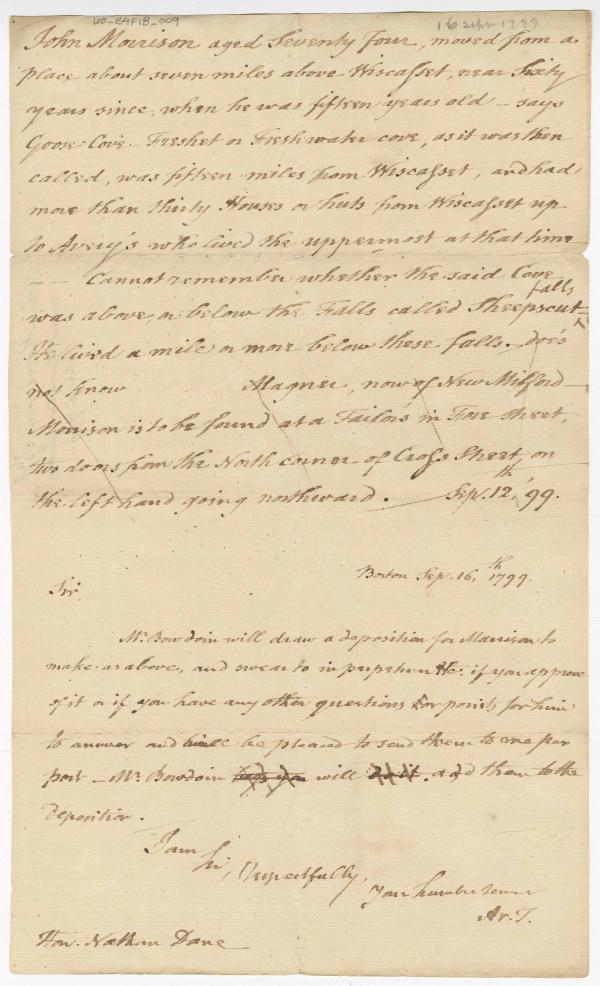 60-B4F18_009
16 Sept 1799
John Morrison aged Seventy Four, moved from a
place about seven miles above Wiscasset, near Sixty
years since, when he was fifteen years old – says
Goose-Cove Freshet or Freshwater cove, as it was then
called, was fifteen miles from Wiscasset, and had
more than thirty Houses or huts from Wiscasset up
to Avery's who lived the uppermost at that time
— Cannot remember whether the said Cove
falls
was above, or below the Falls called Sheepscut –
He lived a mile or more below these falls. – does
not know Magner, now of New Milford –
Morrison is to be found at a Tailors in Fore Street,
two doors from the North corner of Cross Street, on
the left hand going northward. — Sep. 12th, '99.
Boston Sep. 16th, 1799.
Sir
Mr. Bowdoin will draw a deposition for Morrison to
make as above, and swear to in perpetuum &c. if you approve
of it or if you have any other questions or points for him
to answer and will be pleased to send them to me per
post – Mr. Bowdoin will add them to the
deposition.
I am
Sir, Respectfully,
Your humble servt
Ar. T.
Hon. Nathan Dane